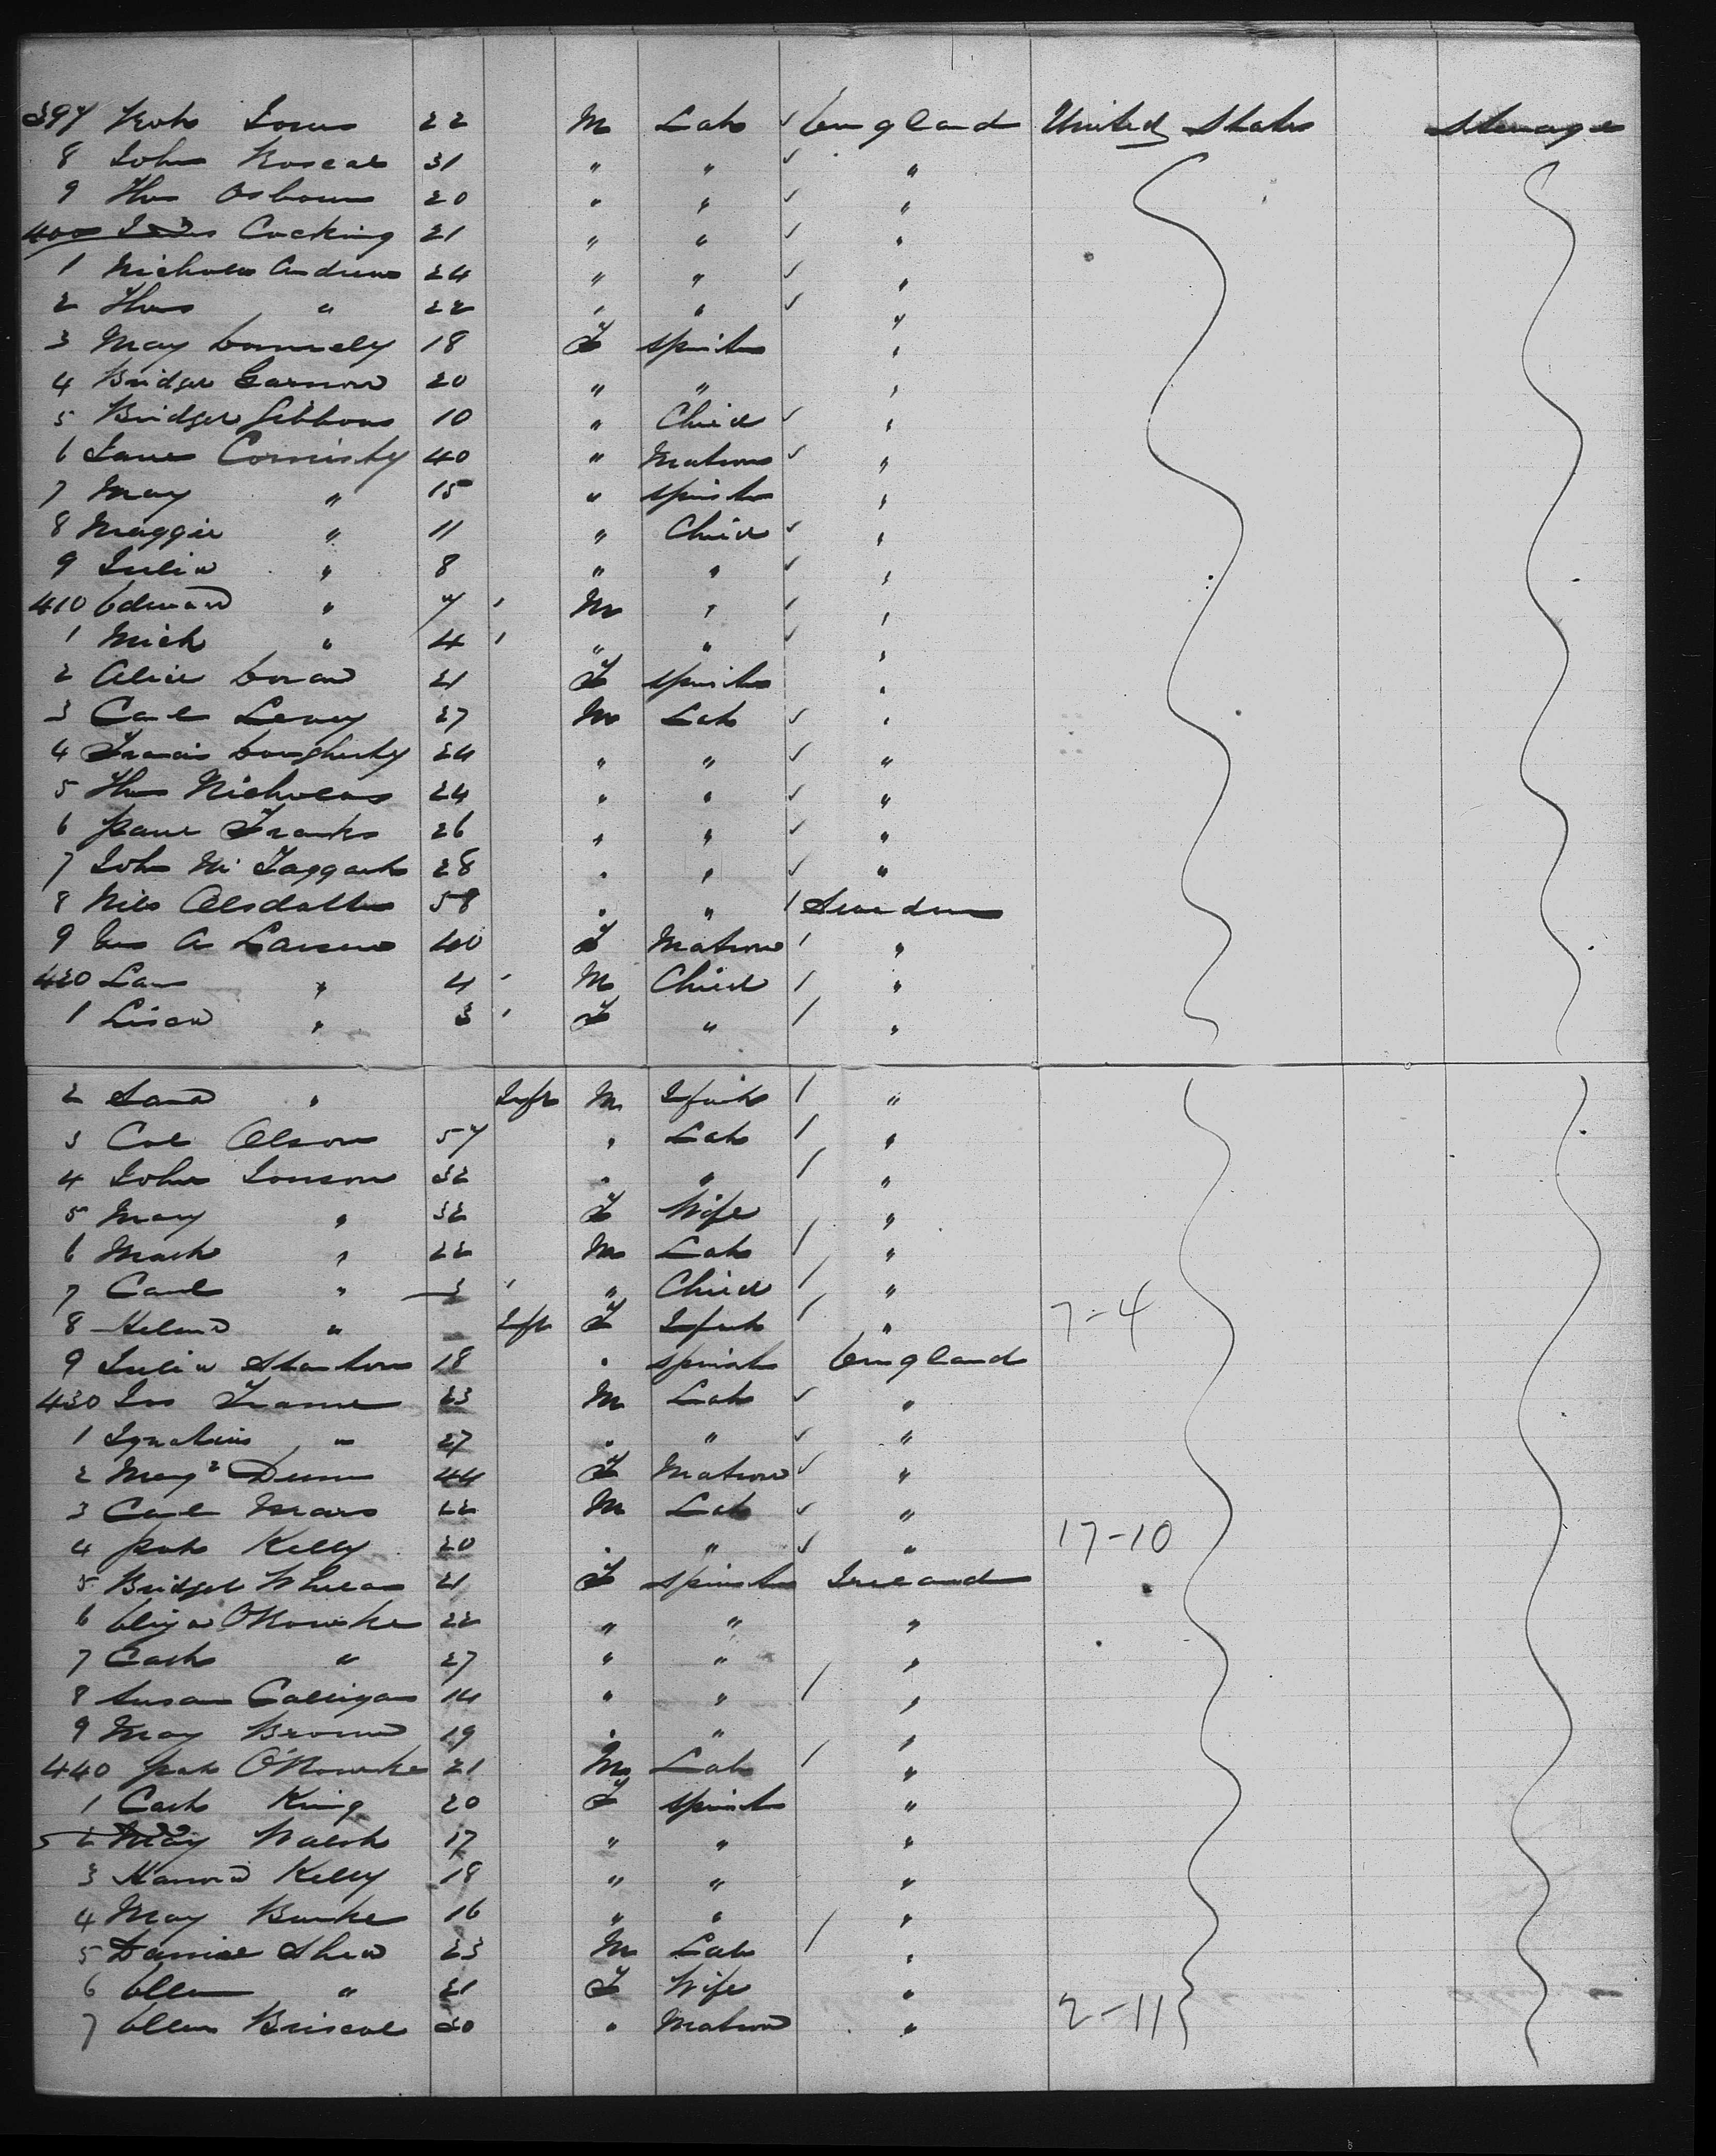 397 Robt Jones 22 M Lab ✓ England United States Steerage
8 John Roscoe 31 " " ✓ "
9 Thos Osborne 20 " " ✓ "
400 Cocking 21 " " ✓ "
1 Nicholas Andrew 24 " " ✓ "
2 Thos " 22 " " ✓ "
3 Mary Connely 18 F Spinster "
4 Bridget 20 " " "
5 Bridget Gibbons 10 " Child ✓ "
6 Jane Cornisky 40 " Matron ✓ "
7 Mary " 15 " Spinster "
8 Maggie " 11 " Child ✓ "
9 Julia " 8 " " ✓ "
410 Edward " 7 M " "
1 Mich " 4 " " ✓ "
2 Alice Doran 21 F Spinster "
3 Carl Levey 27 M Lab ✓ "
4 Francis Dougherty 24 " " ✓ "
5 Thos Nicholas 24 " " ✓ "
6 Paul Franks 26 " " ✓ "
7 John McTaggart 28 " " ✓ "
8 Nils 58 " " / Sweden
9 A Larsen 40 F Matron / "
420 Lars " 4 M Child / "
1 Lisa " 3 F " / "
2 " Inft M Infant / "
3 Olson 57 " Lab / "
4 John Jonson 32 " " / "
5 Mary " 32 F Wife "
6 " 22 M Lab / "
7 Carl " 3 " Child / "
8 " Inft F Infant / " 7-4
9 Julia Stanton 18 " Spinst England
430 Jos 23 M Lab ✓ "
1 Ignatius " 27 " " ✓ "
2 Dunn 44 F Matron ✓ "
3 Carl 22 M Lab ✓ "
4 Pat Kelly 20 " " ✓ " 17-10
5 Bridget Whelan 21 F Spinster Ireland
6 Eliza O'Rourke 22 " " "
7 Cath " 27 " " "
8 Susan Calligan 14 " " / "
9 May Brown 19 " " "
440 Pat O'Rourke 21 M Lab / "
1 Cath King 20 F Spinst "
2 May Walsh 17 " " "
3 Kelly 18 " " "
4 May Burke 16 " " "
5 Daniel Shea 23 M Lab / "
6 Ellen " 21 F Wife "
7 Ellen Briscoe 30 " Matron " 2-11